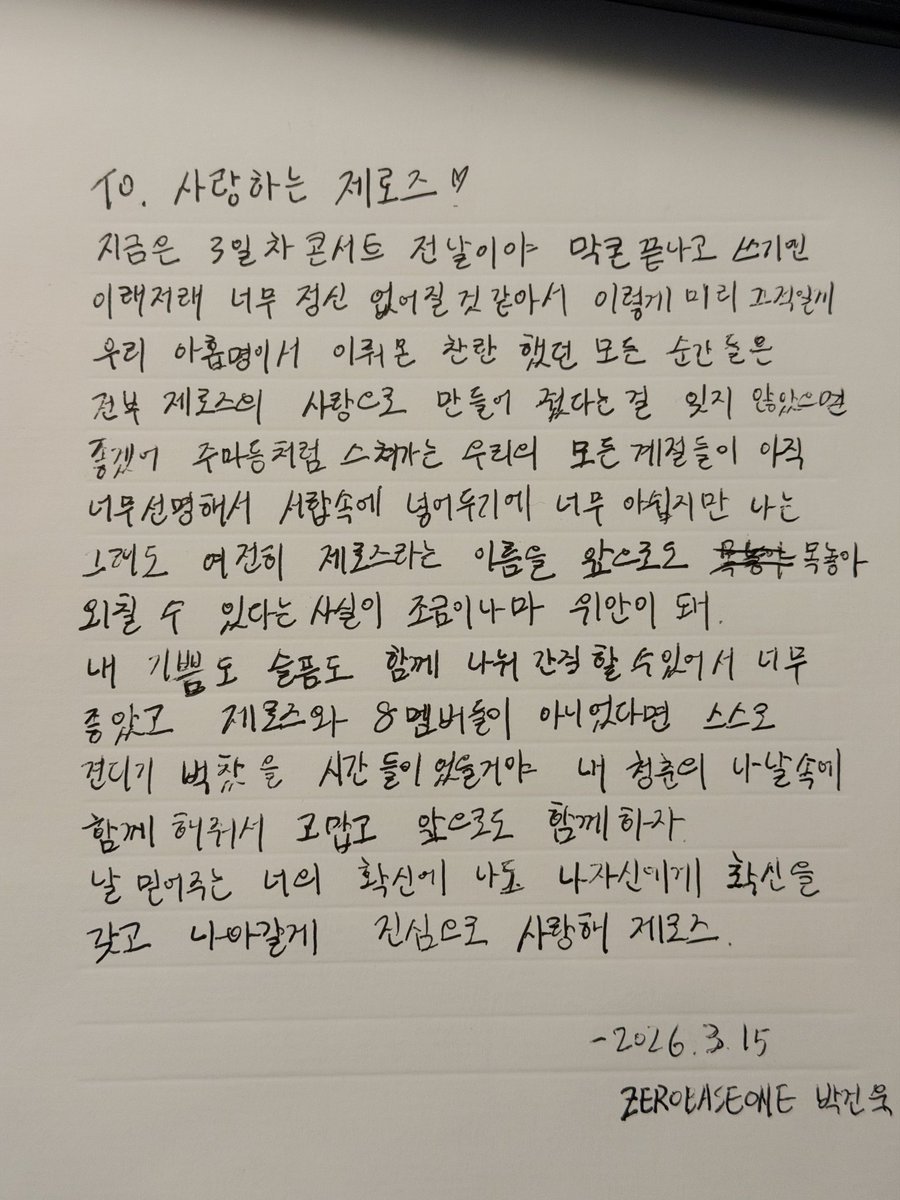 TO. 사랑하는 제로즈♡
지금은 3일차 콘서트 전날이야 막콘 끝나고 쓰기엔
이래저래 너무 정신 없어질 것 같아서 이렇게 미리 끄적일게
우리 아홉명이서 이뤄온 찬란 했던 모든 순간들은
전부 제로즈의 사랑으로 만들어 줬다는 걸 잊지 않았으면
좋겠어 주마등처럼 스쳐가는 우리의 모든 계절들이 아직
너무 선명해서 서랍속에 넣어두기에 너무 아쉽지만 나는
그래도 여전히 제로즈라는 이름을 앞으로도 목놓아
외칠 수 있다는 사실이 조금이나마 위안이 돼.
내 기쁨도 슬픔도 함께 나눠 간직 할 수 있어서 너무
좋았고 제로즈와 8멤버들이 아니었다면 스스로
견디기 벅찼을 시간 들이었을거야 내 청춘의 나날속에
함께 해줘서 고맙고 앞으로도 함께하자
날 믿어주는 너의 확신에 나도 나자신에게 확신을
갖고 나아갈게 진심으로 사랑해 제로즈.
-2026.3.15
ZEROBASEONE 박건욱